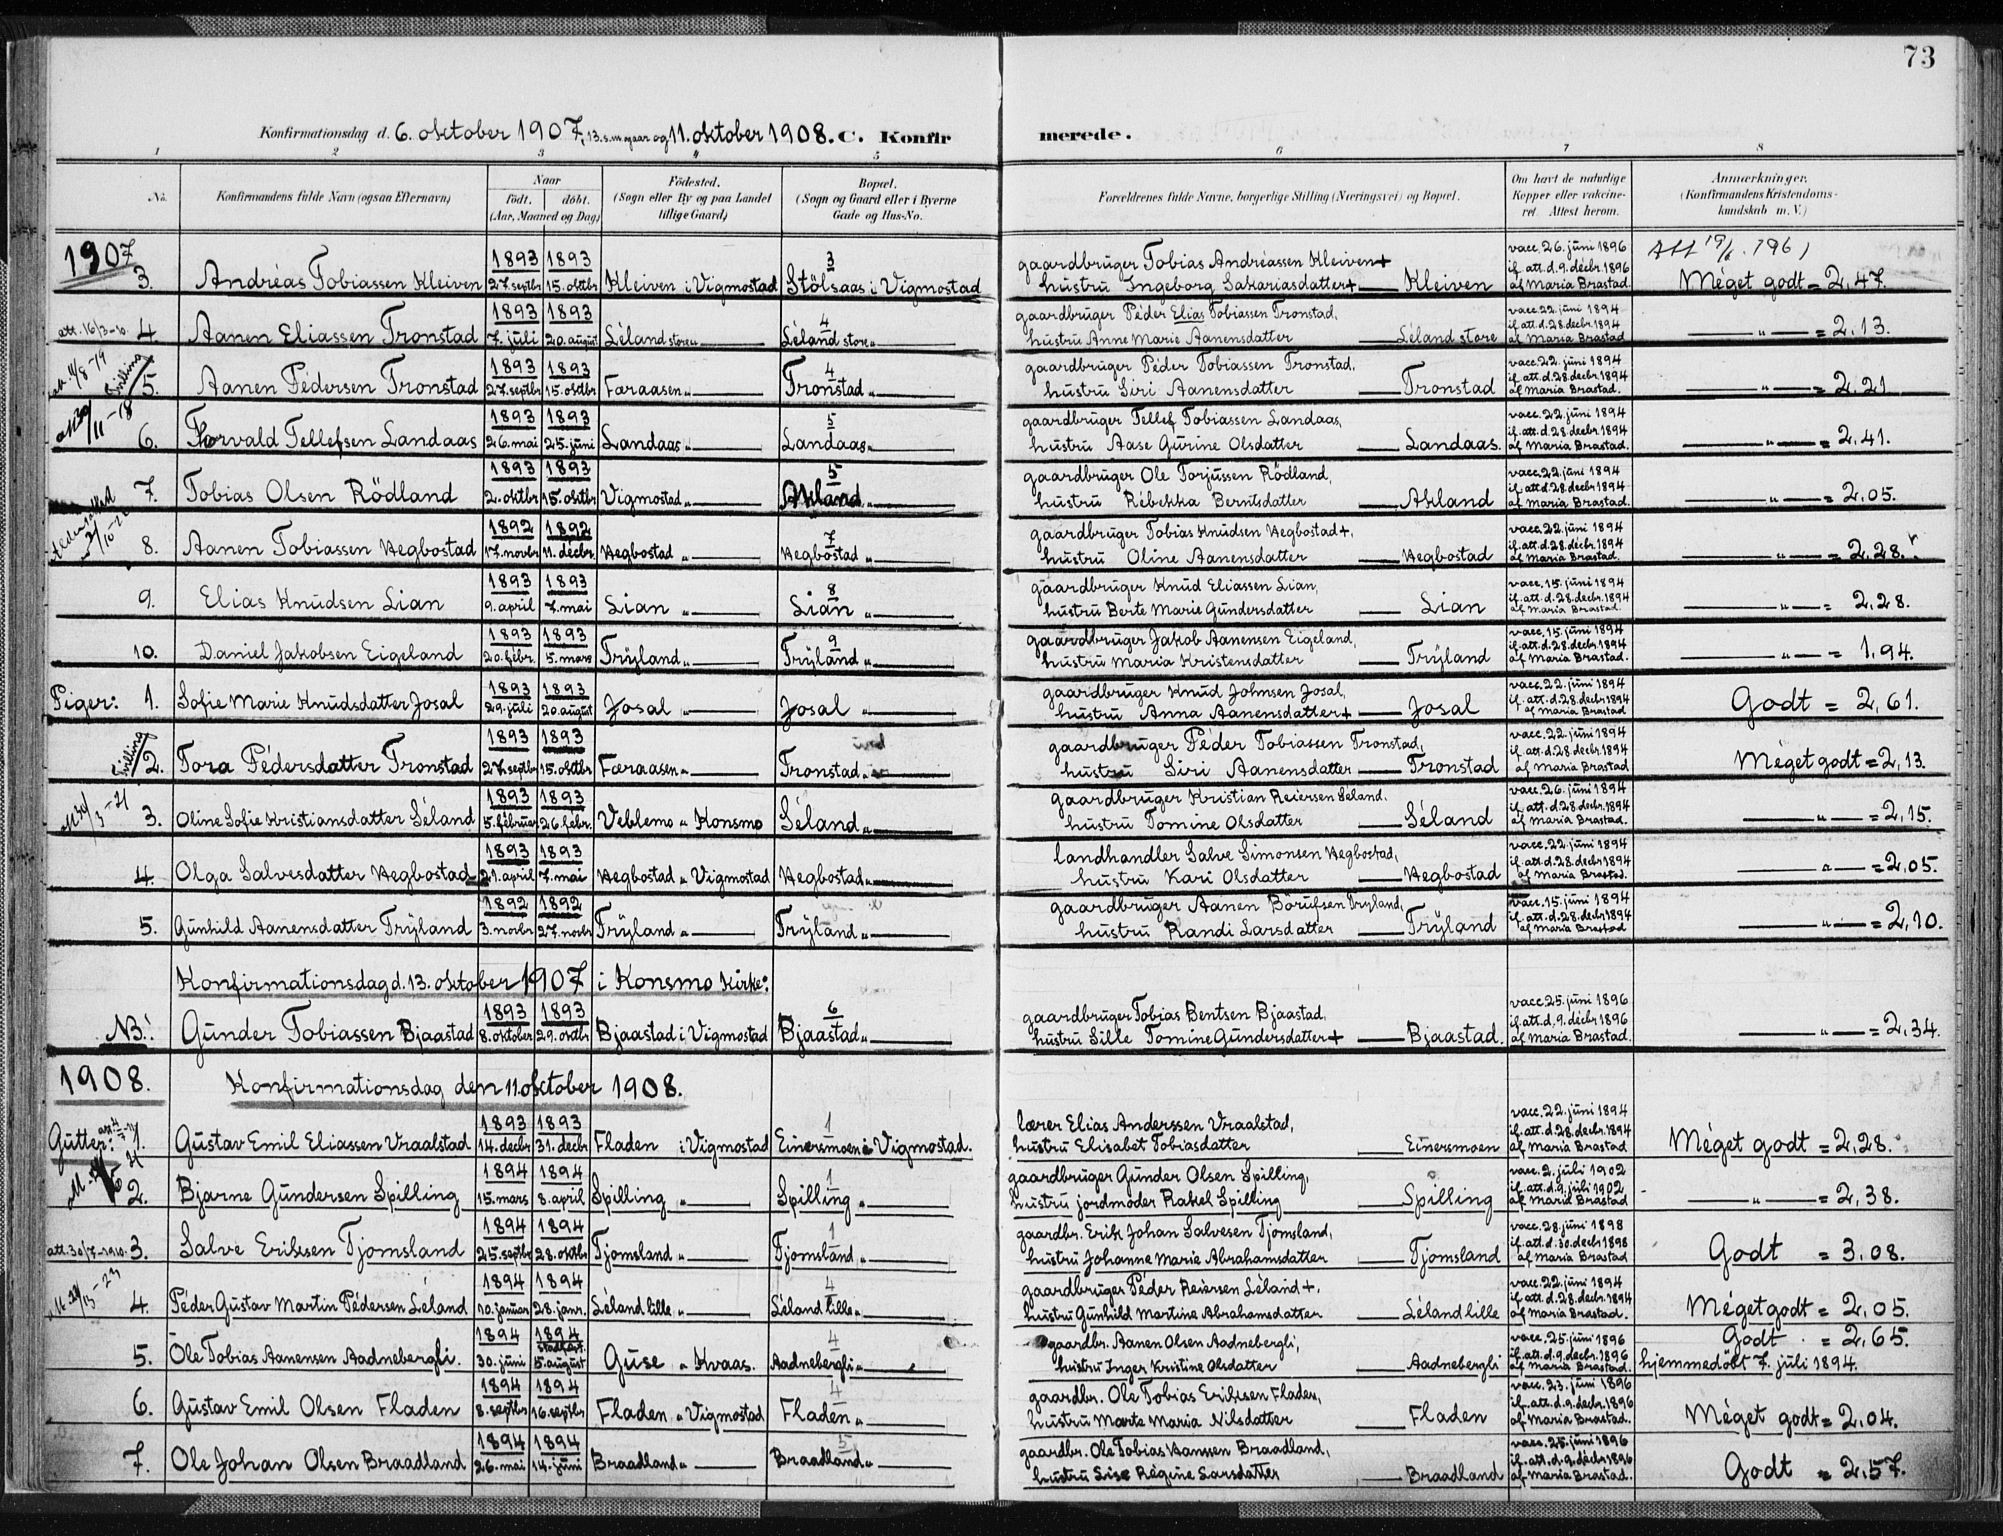 73
Konfirmationsdag d. 6. oktober 1907, 13. s.m. og 11. oktober 1908. C. Konfirmerede.
1 2 3 4 5 6 7 8
No. Konfirmandens fulde Navn (ogsaa Efternavn) Naar født. døbt. (Aar, Maaned og Dag) Fødested. (Sogn eller By og paa Landet tillige Gaard) Bopæl. (Sogn og Gaard eller i Byerne Gade og Hus-No. Forældrenes fulde Navne, borgerlige Stilling (Næringsvei) og Bopæl. Om havt de naturlige Kopper eller vakcineret. Attest herom. Anmærkninger. (Konfirmandens Kristendomskundskab m. V.)
1907
3. Andréas Tobiassen Kleiven 1893 27. septbr 1893 15. oktbr Kleiven i Vigmostad 3 Stölsaas i Vigmostad gaardbruger Tobias Andréassen Kleiven+ hustru Ingeborg Sakariasdatter+ Kleiven vacc. 26. juni 1896 if. att. d. 9. decbr. 1896 af Maria Brastad. Att 19/6. 1961 Méget godt = 2,47.
att. 16/3-10. 4. Aanen Eliassen Tronstad 1893 7. juli 1893 20. august Léland store " 4 Léland store " gaardbruger Péder Elias Tobiassen Tronstad, hustru Anne Marie Aanensdatter Léland store vacc. 22. juni 1894 if. att. d. 28. decbr. 1894 af Maria Brastad " = 2,13.
Tvilling 5. Aanen Pédersen Tronstad 1893 27. septbr 1893 15. oktbr Faraasen " 4 Tronstad " gaardbruger Péder Tobiassen Tronstad, hustru Siri Aanensdatter Tronstad vacc. 22. juni 1894 if. att. d. 28. decbr. 1894 af Maria Brastad. " = 2,21
6. Torvald Tellefsen Landaas 1893 26. mai 1893 25. juni Landaas " 5 Landaas " gaardbruger Tellef Tobiassen Landaas, hustru Aase Gurine Olsdatter Landaas. vacc. 22. juni 1894 if. att. d. 28. decbr. 1894 af Maria Brastad. " = 2,41.
7. Tobias Olsen Rödland 1893 2. oktbr 1893 15. oktbr Vigmostad " 5 Akland " gaardbruger Ole Torjussen Rödland, hustru Rébekka Berntsdatter Akland vacc. 22. juni 1894 if. att. d. 28. decbr. 1894 af Maria Brastad. " = 2,05.
8. Aanen Tobiassen Hegbostad 1892 17. novbr 1892 11. decbr. Hegbostad " 7 Hegbostad " gaardbruger Tobias Knudsen Hegbostad+, hustru Oline Aanensdatter Hegbostad vacc. 22. juni 1894 if. att. d. 28. decbr. 1894 af Maria Brastad. " = 2,28.
9. Elias Knudsen Lian 1893 9. april 1893 7. mai Lian " 8 Lian " gaardbruger Knud Eliassen Lian, hustru Berte Marie Gundersdatter Lian vacc. 15. juni 1894 if. att. d. 28. decbr. 1894 af Maria Brastad. " = 2,28.
10. Daniel Jakobsen Eigeland 1893 20. febr. 1893 5. mars Trÿland " 9 Trÿland " gaardbruger Jakob Aanensen Eigeland, hustru Maria Kristensdatter Trÿland vacc. 15. juni 1894 if. att. d. 28. decbr. 1894 af Maria Brastad. " = 1,94.
Piger: 1. Sofie Marie Knudsdatter Josal 1893 29. juli 1893 20. august Josal " Josal " gaardbruger Knud Johnsen Josal, hustru Anna Aanensdatter+ Josal vacc. 22. juni 1894 if. att. d. 28. decbr. 1894 af Maria Brastad Godt = 2,61.
Tvilling 2. Tora Pédersdatter Tronstad 1893 27. septbr 1893 15. oktbr Faraasen " Tronstad " gaardbruger Péder Tobiassen Tronstad, hustru Siri Aanensdatter Tronstad vacc. 22. juni 1894 if. att. d. 28. decbr. 1894 af Maria Brastad Méget godt = 2,13.
3. Oline Sofie Kristiansdatter Séland 1893 5. februar 1893 26. febr. Veblemo " Konsmo Séland " gaardbruger Kristian Reiersen Séland. hustru Tomine Olsdatter Séland vacc. 26. juni 1894 if. att. d. 28. decbr. 1894 af Maria Brastad. " = 2,15.
4. Olga Salvesdatter Hegbostad 1893 21. april 1893 7. mai Hegbostad " Vigmostad Hegbostad " landhandler Salve Simonsen Hegbostad, hustru Kari Olsdatter Hegbostad vacc. 22. juni 1894 if. att. d. 28. decbr 1894 af Maria Brastad. " = 2,05.
5. Gunhild Aanensdatter Trÿland 1892 3. novbr 1892 27. novbr Trÿland " Trÿland " gaardbruger Aanen Börufsen Trÿland, hustru Randi Larsdatter Trÿland vacc. 15. juni 1894 if. att. d. 28. decbr 1894 af Maria Brastad " = 2,10.
Konfirmationsdag d. 13. oktober 1907 i Konsmo Kirke:
NB! Gunder Tobiassen Bjaastad 1893 8. oktober 1893 29. oktbr Bjaastad i Vigmostad 6 Bjaastad " gaardbruger Tobias Bentsen Bjaastad, hustru Sille Tomine Gundersdatter+ Bjaastad. vacc. 25. juni 1896 if. att. d. 9. decbr 1896 af Maria Brastad. " = 2,34.
1908. Konfirmationsdag den 11. oktober 1908.
Gutter: 1. Gustav Emil Eliassen Vraalstad 1893 14. decbr 1893 31. decbr Fladen i Vigmostad 1 Einersmoen i Vigmostad. lærer Elias Anderssen Vraalstad, hustru Elisabet Tobiasdatter Einersmoen vacc. 22. juni 1894 if. att. d. 28. decbr. 1894 af Maria Brastad Méget godt = 2,28.
2. Bjarne Gundersen Spilling 1894 15. mars 1894 8. april Spilling " 1 Spilling " gaardbruger Gunder Olsen Spilling, hustru jordmoder Rakel Spilling Spilling vacc. 2. juli 1902 if. att. d. 9. juli 1902 af Maria Brastad " = 2,38.
att. 30/7-1910. 3. Salve Eriksen Tjomsland 1894 25. septbr 1894 28. oktbr Tjomsland " 1 Tjomsland " gaardbr. Erik Johan Salvesen Tjomsland, hustru Johanne Marie Abrahamsdatter Tjomsland vacc. 28. juni 1898 if. att. d. 30. decbr 1898 af Maria Brastad Godt = 3,08.
4. Péder Gustav Martin Pédersen Léland 1894 10. januar 1894 28. janr. Léland lille " 4 Léland lille " gaardbruger Péder Reiersen Léland+, hustru Gunhild Martine Abrahamsdatter Léland lille vacc. 22. juni 1894 if. att. d. 28. decbr. 1894 af Maria Brastad. Méget godt = 2,05.
5. Ole Tobias Aanensen Aadnebergli. 1894 30. juni 1894 stadfæst 5. august Guse " Kvaas. 4 Aadnebergli " gaardbr. Aanen Olsen Aadnebergli, hustru Inger Kristine Olsdatter Aadnebergli vacc. 25. juni 1896 if. att. d. 9. decbr. 1896 af Maria Brastad. Godt = 2,65. hjemmedöbt 7. juli 1894.
6. Gustav Emil Olsen Fladen 1894 8. septbr 1894 16. septbr Fladen " Vigmostad 4 Fladen " gaardbr. Ole Tobias Eriksen Fladen, hustru Marte Maria Nilsdatter Fladen vacc. 23. juni 1896 if. att. d. 9. decbr. 1896 af Maria Brastad. Méget godt = 2,04.
7. Ole Johan Olsen Braadland 1894 26. mai 1894 14. juni Braadland " 5 Braadland " gaardbr. Ole Tobias Hanssen Braadland, hustru Sise Régine Larsdatter Braadland vacc. 25. juni 1896 if. att. d. 9. decbr 1896 af Maria Brastad. Godt = 2,57.